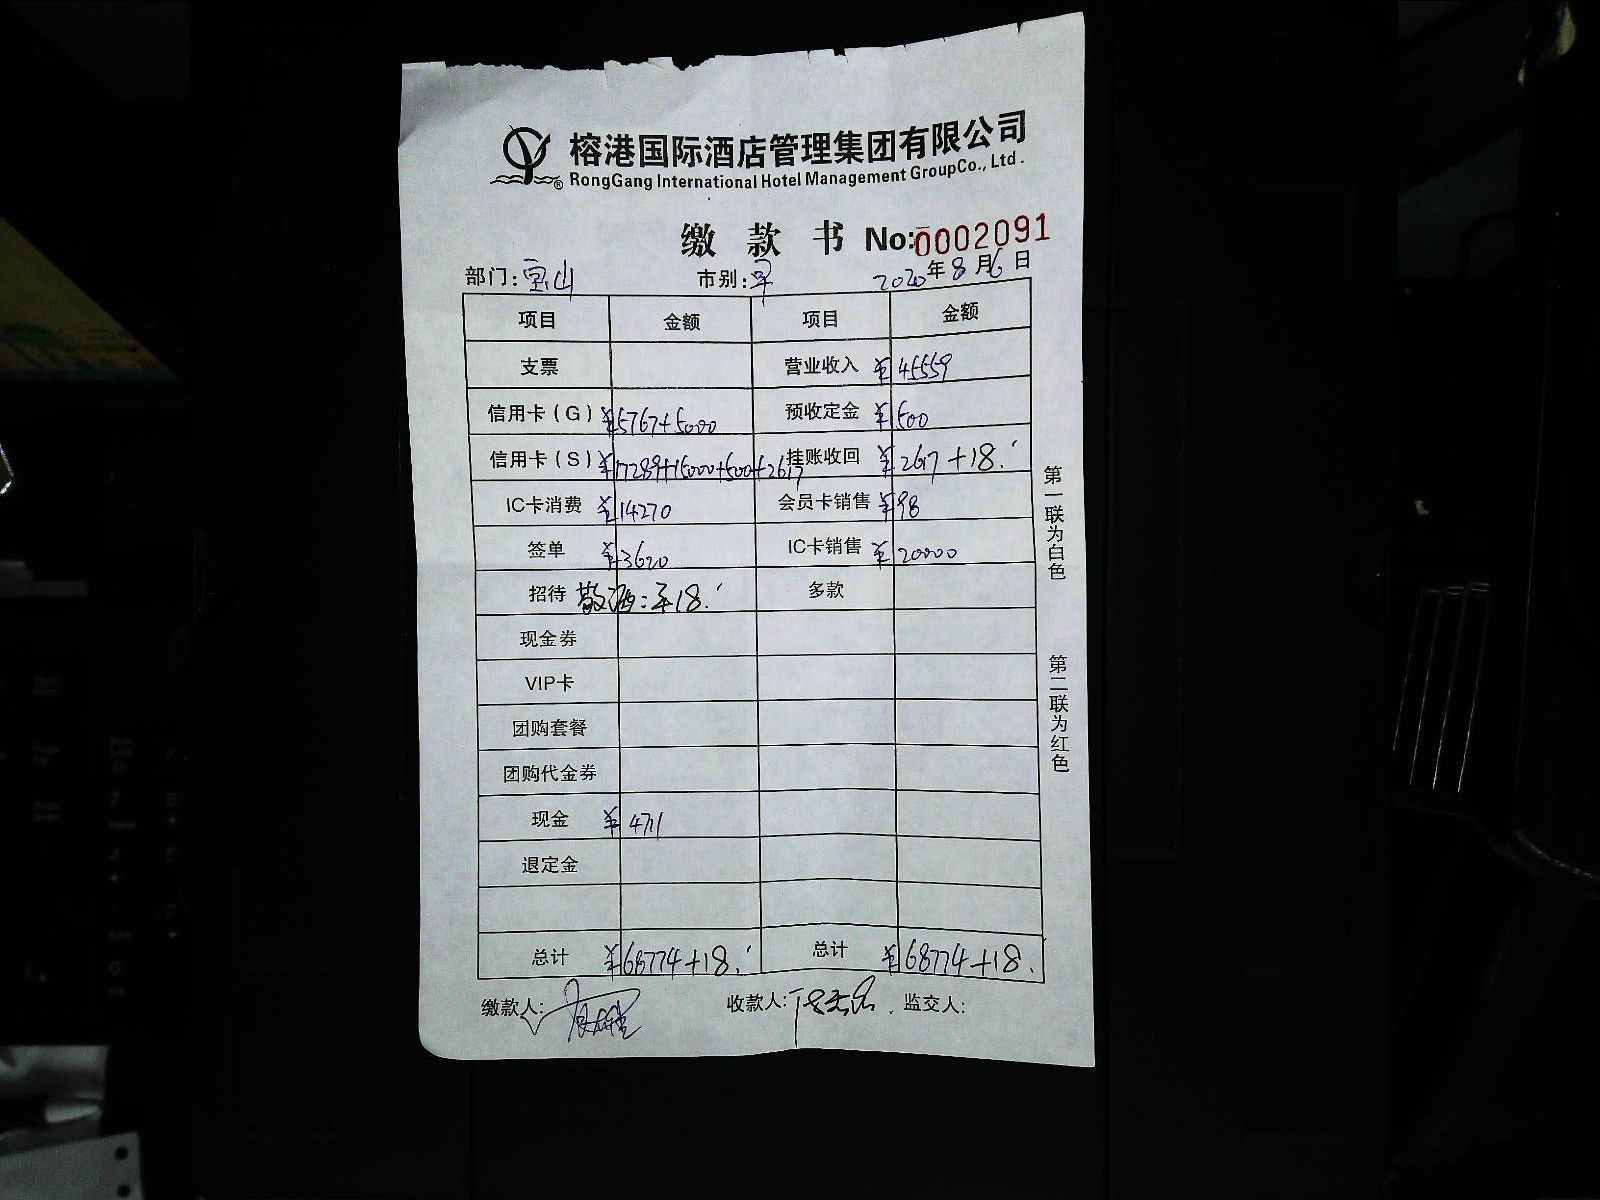 榕港国际酒店管理集团有限公司
RongGang International Hotel Management GroupCo., Ltd.
缴款书 No:0002091
部门:宝山 市别:早 2020年8月6日
项目 金额 项目 金额
支票 营业收入 ¥45559
信用卡(G) ¥5767+5000 预收定金 ¥500
信用卡(S) ¥17289+15000+500+2617 挂账收回 ¥2617+18.
IC卡消费 ¥14270 会员卡销售 ¥98
签单 ¥3620 IC卡销售 ¥20000
招待 敬酒:¥18. 多款
现金券
VIP卡
团购套餐
团购代金券
现金 ¥4711
退定金
总计 ¥68774+18. 总计 ¥68774+18.
缴款人: 收款人: 监交人:
第一联为白色
第二联为红色